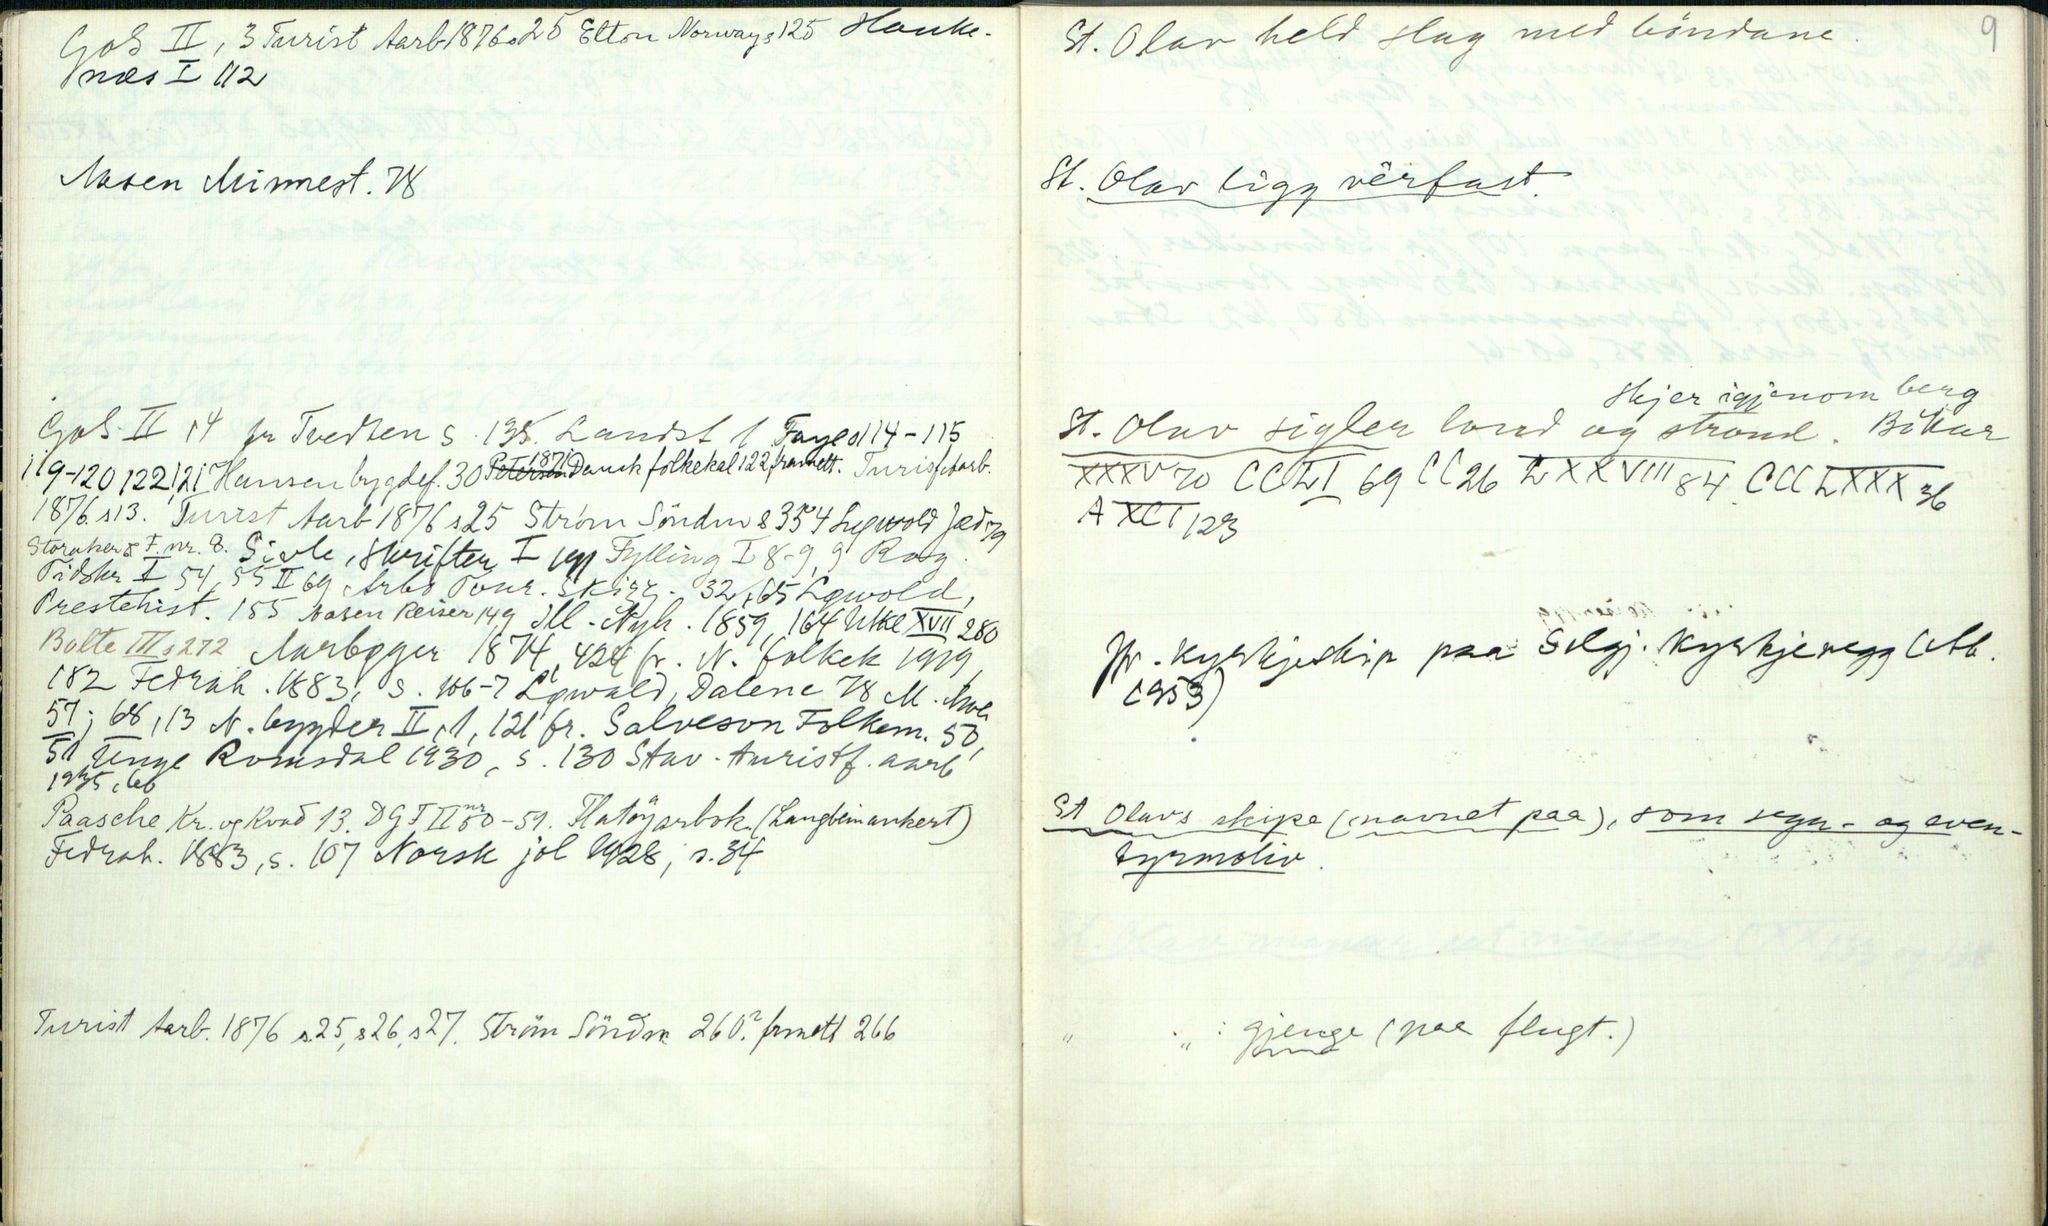 GoS II, 3 Turist Aarb 1876 s 25 Elton Norway s 125 Hauke-
næs I 112
Aasen Minnest. 78
GoS II 14 fr Tvedten s. 138. Landst 1 Faye s 114-115
119-120 122, 121 Hansen bygdef. 30 Petersen 1871 Dansk folkekal 122 framett. Turistf Aarb.
1876 s 13. Turist Aarb 1876 s 25 Strøm Søndm 8 354 Lygwold Jæd 79
Storaker & F. nr. 8. Sivle, Skrifter I Fylling I 8-9, 9 Rog.
Tidskr I 54, 55 II 69 Arbo Tour. Skizz. 32, 65 Lgwold,
Prestehist. 155 Aasen Reiser 149 Ill. Nyh. 1859, 164 Utkl XVII 280
Bolte III s 272 Aarbøger 1874, 424 fr. N. folkek 1919,
182 Fedrah. 1883, s. 106-7 Lgwald, Dalene 78 M. Moe
57; 68, 13 N. bygder II, 1, 121 fr. Salveson Folkem. 50,
51 Unge Romsdal 1930, s. 130 Stav. turistf. aarb
1935, 66
Paasche Kr. og Kvad 13. DGF II nr 50-51. Flatøyarbok (Langbeinankert)
Fedrah. 1883, s. 107 Norsk jol 1928, s. 34
Turist Aarb. 1876 s 25, s 26, s 27. Strøm Søndm 260? frmett 266
9
St. Olav held slag med böndane.
St. Olav ligg vêrfast.
skjer igjenom berg
St. Olav sigler land og strand. Bökar
XXXV 70 CCLI 69 CC 26 LXXVIII 84 CCLXXX 36
A XCI 123
Jfr. Kyrkjeskip paa Selgj. Kyrkjevegg (Ab.
1953)
St Olavs skipe (navnet paa), som segn- og even-
tyrmotiv.
" " : gjenge (paa flugt.)